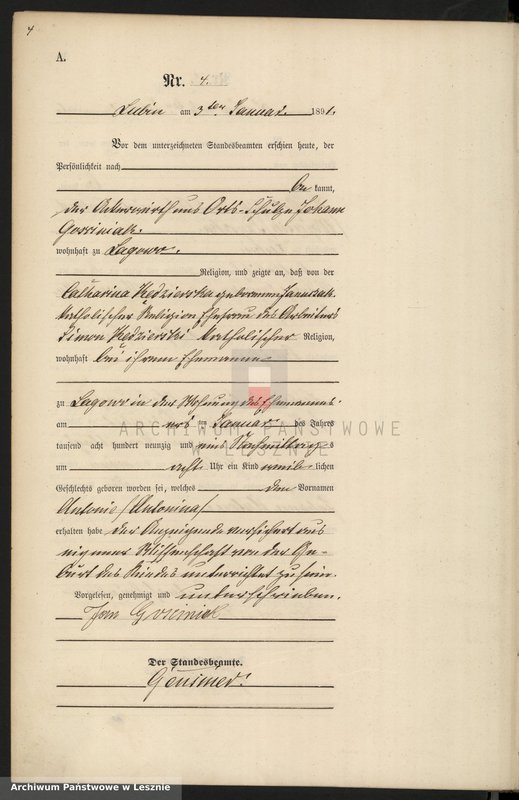 4
A.
Nr. 4.
Lubin am 3ten Januar 1891.
Vor dem unterzeichneten Standesbeamten erschien heute, der
Persönlichkeit nach
be kannt,
der Ackerwirth und Orts-Schulze Johann
Gosciniak.
wohnhaft zu Lagowo.
Religion, und zeigte an, daß von der
Catharina Kędzierska geborenen Januszak
Katholischer Religion Ehefrau des Arbeiters
Simon Kędzierski Katholischer Religion,
wohnhaft bei ihrem Ehemanne
zu Lagowo in der Wohnung des Ehemannes.
am ersten Januar des Jahres
tausend acht hundert neunzig und eins Nachmittags
um acht Uhr ein Kind weib lichen
Geschlechts geboren worden sei, welches den Vornamen
Antonie /Antonina/
erhalten habe der Anzeigende versichert aus
eigener Wissenschaft von der Ge-
burt des Kindes unterrichtet zu sein.
Vorgelesen, genehmigt und unterschrieben.
Jan Gosciniak
Der Standesbeamte.
ARCHIWUM PAŃSTWOWE
W LESZNIE
Archiwum Państwowe w Lesznie